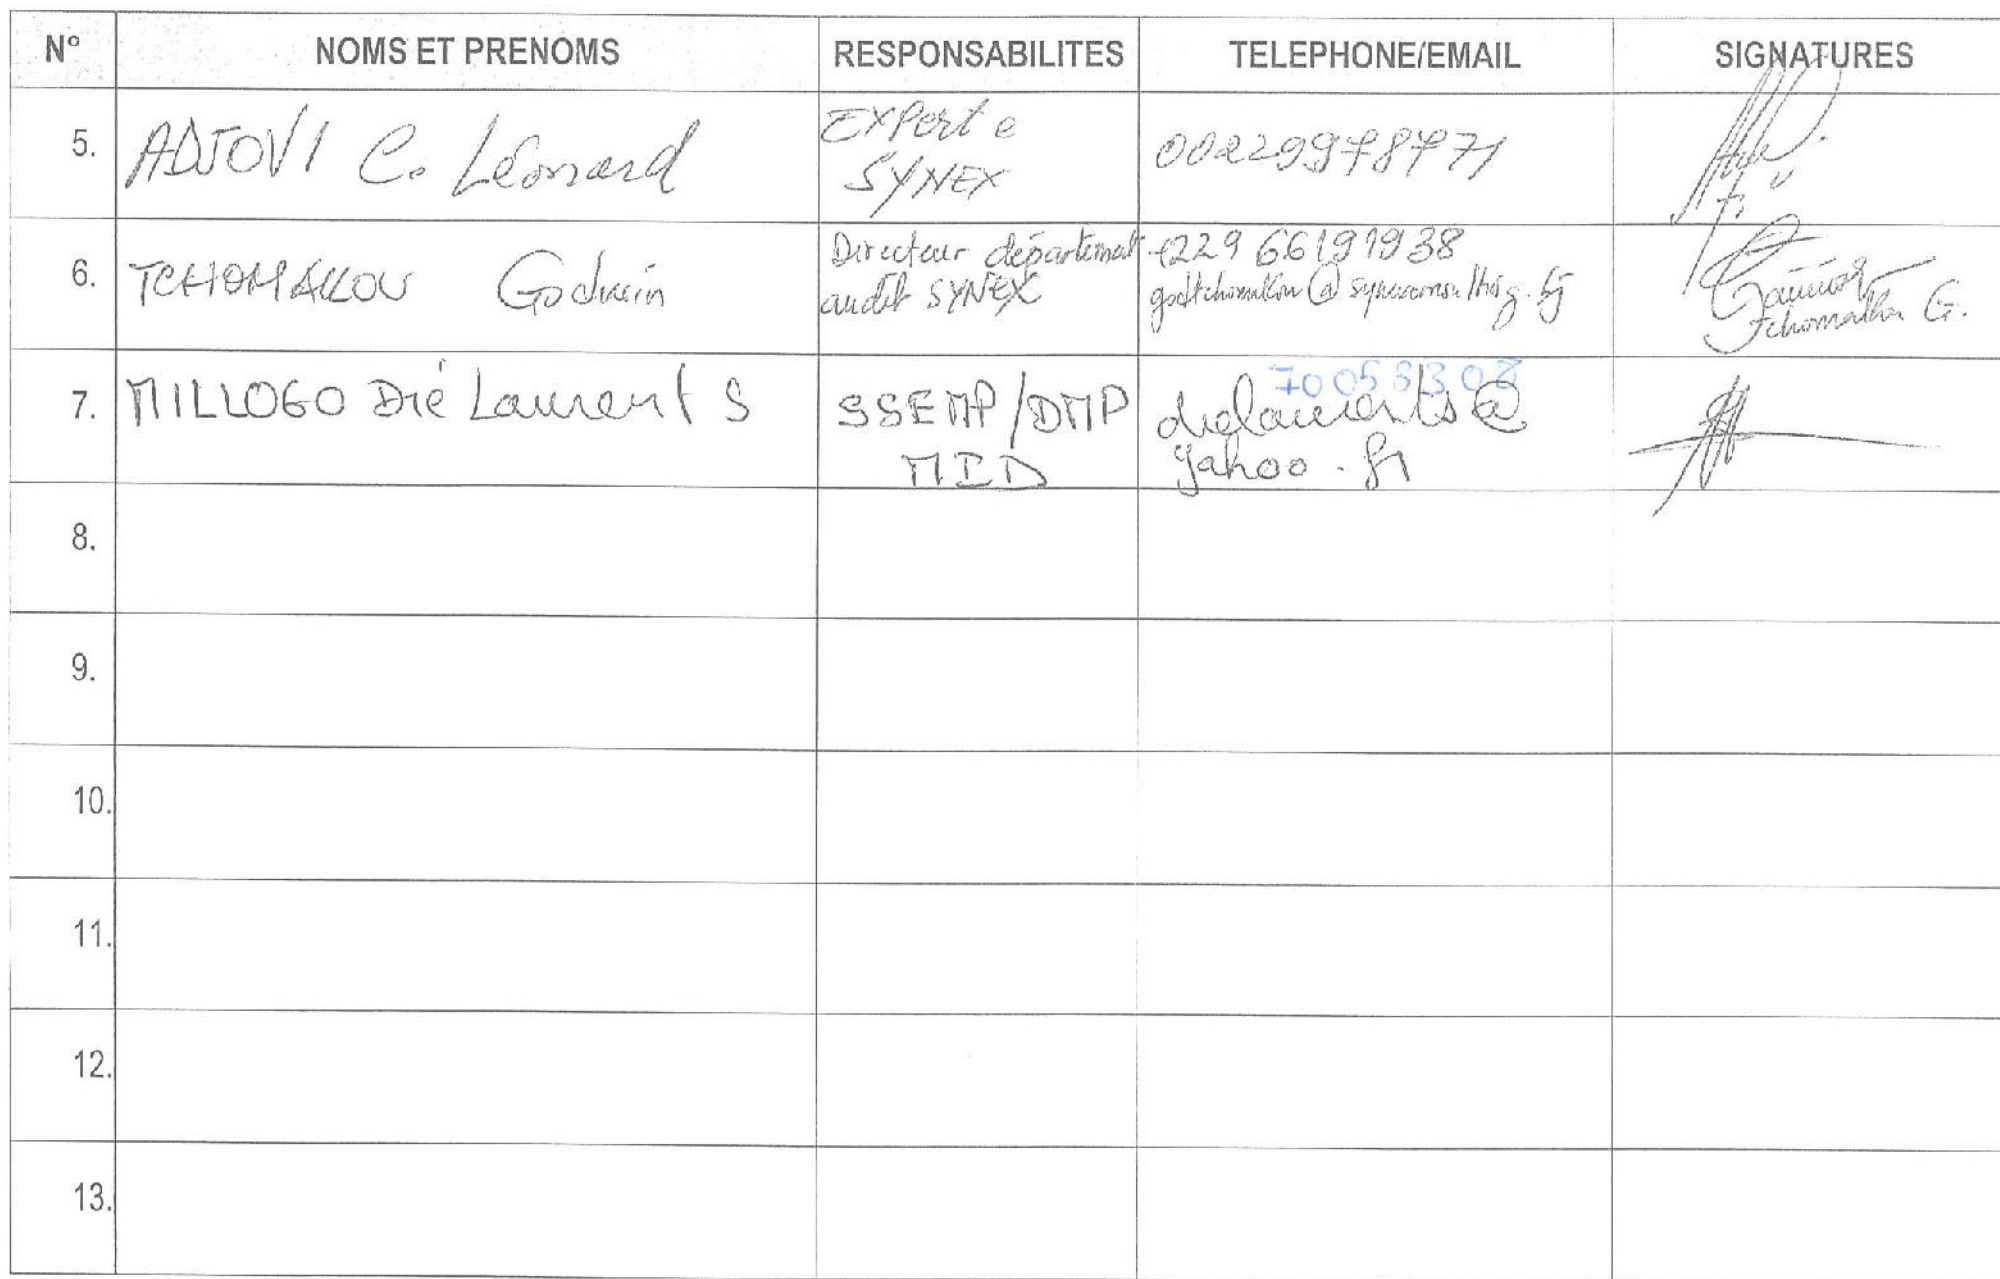 N° NOMS ET PRENOMS RESPONSABILITES TELEPHONE/EMAIL SIGNATURES
5. ADJOVI C. Léonard
Expert e
SYNEX
0022997877 71
6. TCHOMAKOU Godwin
Directeur département
audit SYNEX
+229 66191938
7. MILLOGO Dié Laurent S
SSEMP/DMP
MID
70053308
dielaurents@
yahoo.fr
8.
9.
10.
11.
12.
13.